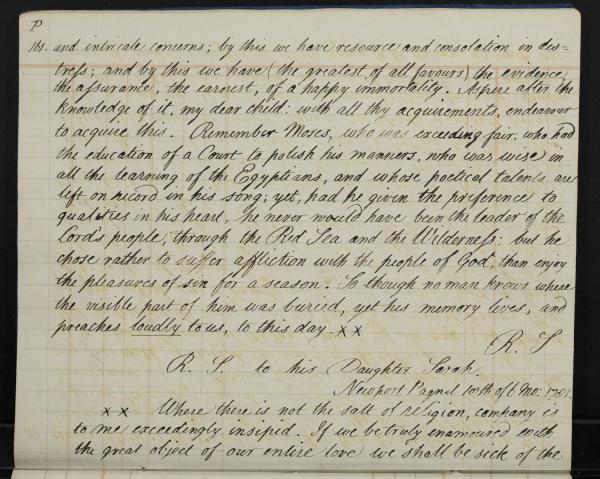 P
161. and intricate concerns; by this we have resource and consolation in dis=
tress; and by this we have (the greatest of all favours) the evidence,
the assurance, the earnest, of a happy immortality. Aspire after the
knowledge of it, my dear child: with all thy acquirements, endeavour
to acquire this. Remember Moses, who was exceeding fair, who had
the education of a Court to polish his manners, who was wise in
all the learning of the Egyptians, and whose poetical talents are
left on record in his song; yet, had he given the preference to
qualities in his heart, he never would have been the leader of the
Lord's people, through the Red Sea and the Wilderness: but he
chose rather to suffer affliction with the people of God, than enjoy
the pleasures of sin for a season. So though no man knows where
the visible part of him was buried, yet his memory lives, and
preaches loudly to us, to this day. x x
R. S
R. S. to his Daughter Sarah.
Newport Pagnel of 6 Mo: 1781.
x x Where there is not the salt of religion, company is
to me exceedingly insipid. If we be truly enamoured with
the great object of our entire love we shall be sick of the